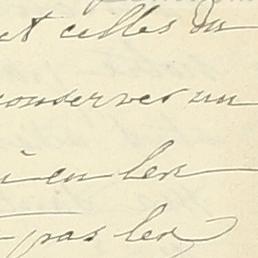 et celles du
conserver un
en les
pas les